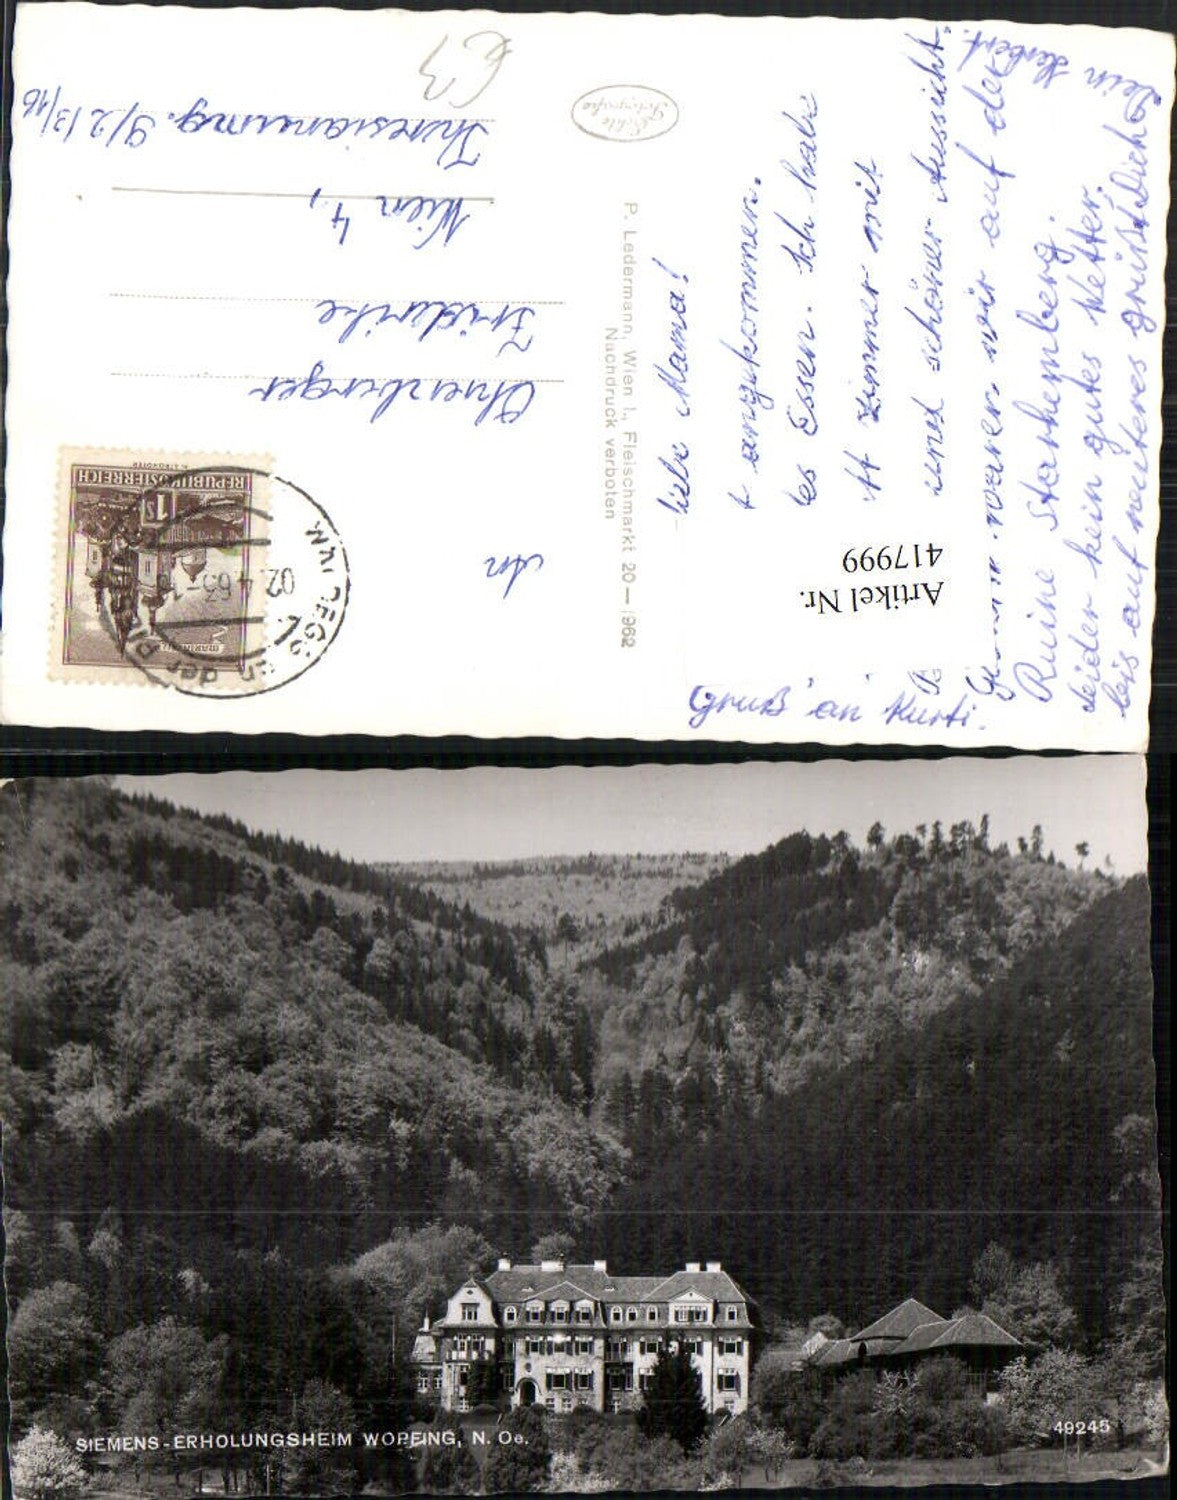 Liebe Mama!
t angekommen.
es Essen. Ich habe
tt Zimmer mit
und schöner Aussicht.
waren wir auf der
Ruine Starhemberg.
Leider kein gutes Wetter.
bis auf weiteres grüßt Dich
Dein Herbert.
Gruß an Kurti.
Artikel Nr.
417999
P. Ledermann, Wien I., Fleischmarkt 20 — 1962
Nachdruck verboten
Echte
Fotografie
REPUBLIK ÖSTERREICH
1 S
02.4.63
an der
An
Friderike
Wien 4.,
Theresianumg. 9/2/3/16
€3
SIEMENS-ERHOLUNGSHEIM WOPFING, N. Oe.
49245